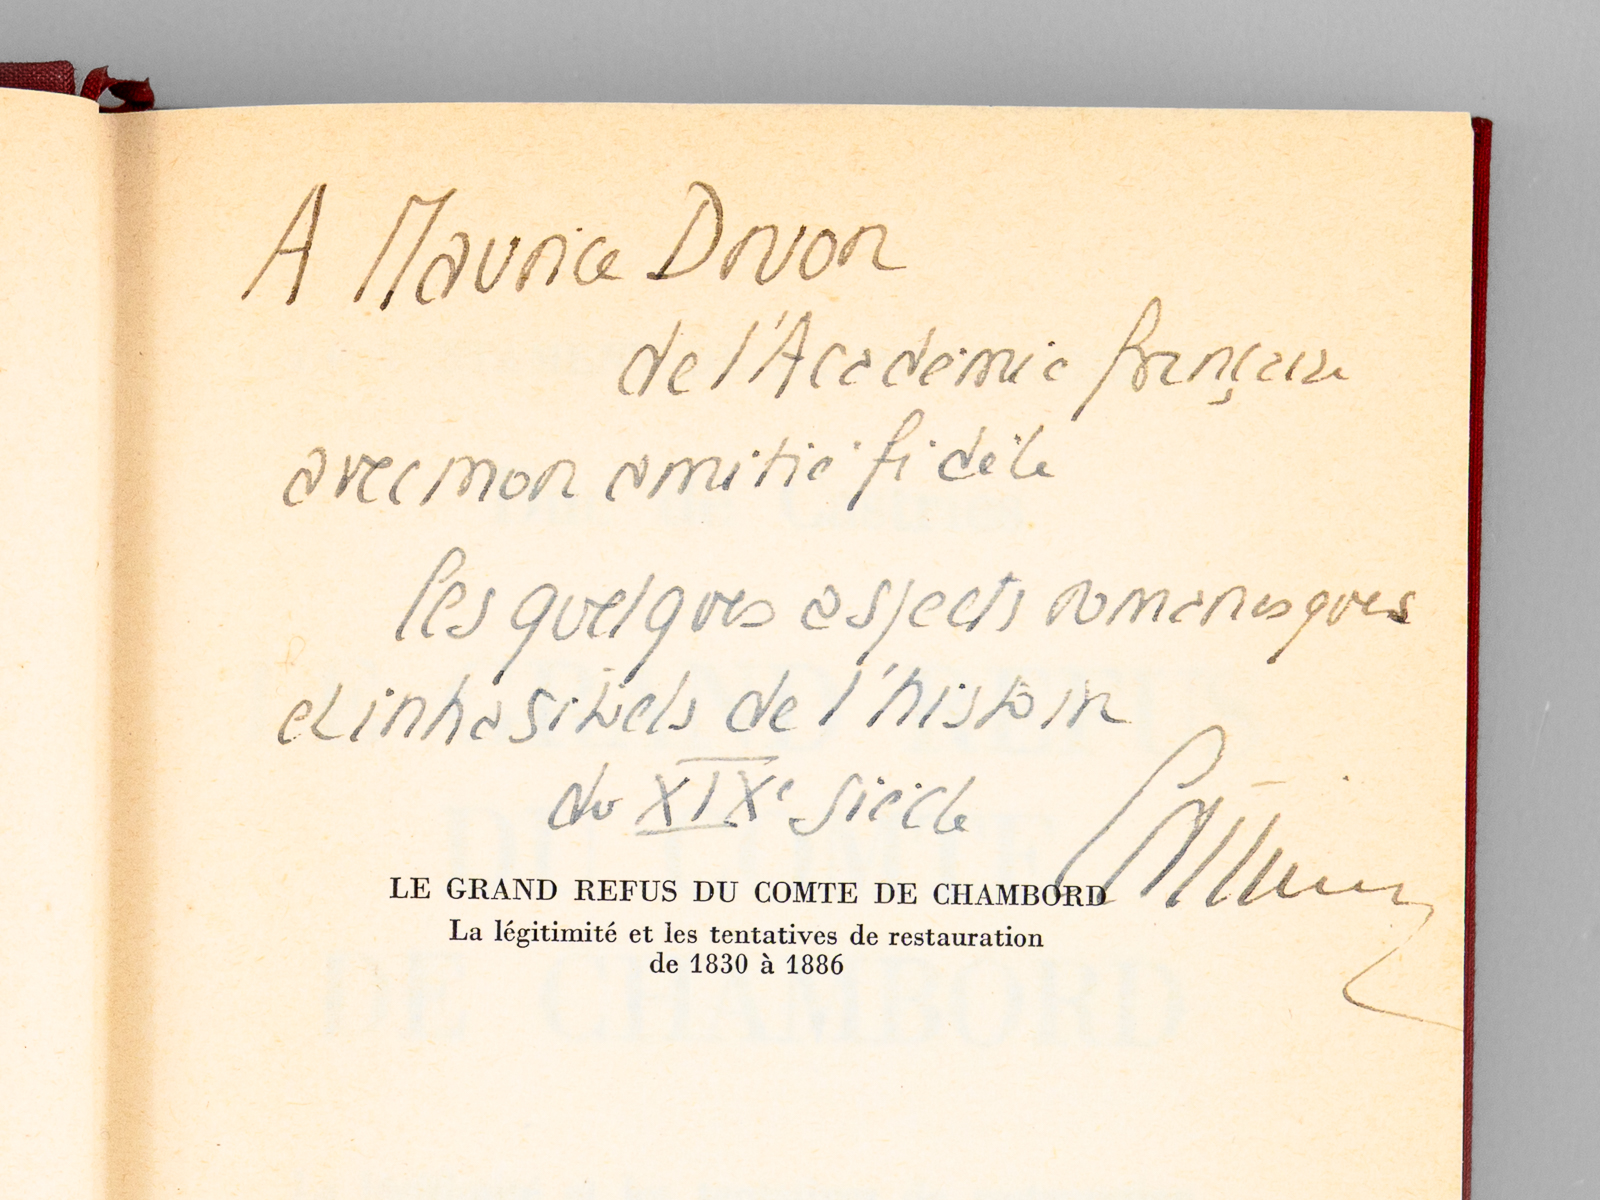 A Maurice Druon
de l'Académie française
avec mon amitié fidèle
ces quelques aspects romanesques
et inhabituels de l'histoire
du XIXe siècle
LE GRAND REFUS DU COMTE DE CHAMBORD
La légitimité et les tentatives de restauration
de 1830 à 1886